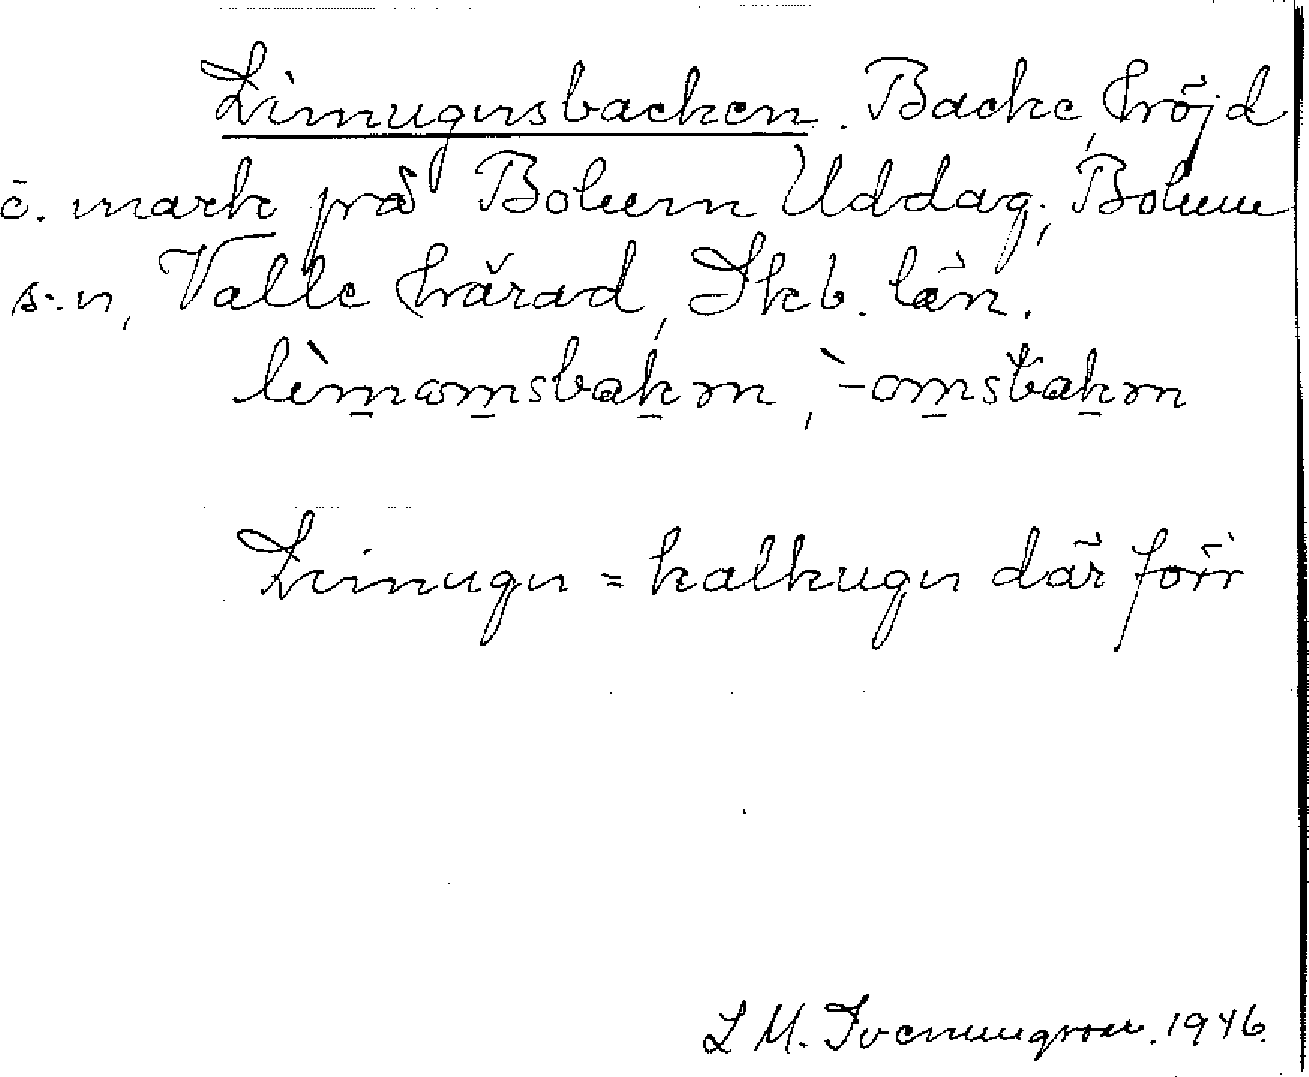 Limugnsbacken. Backe, höjd
o. mark på Bolum Uddag., Bolum
s-n, Valle härad, Skb. län.
lìmomsbakən, `-omsbakən
Limugn = kalkugn där förr
L M. Svenungsson. 1946.